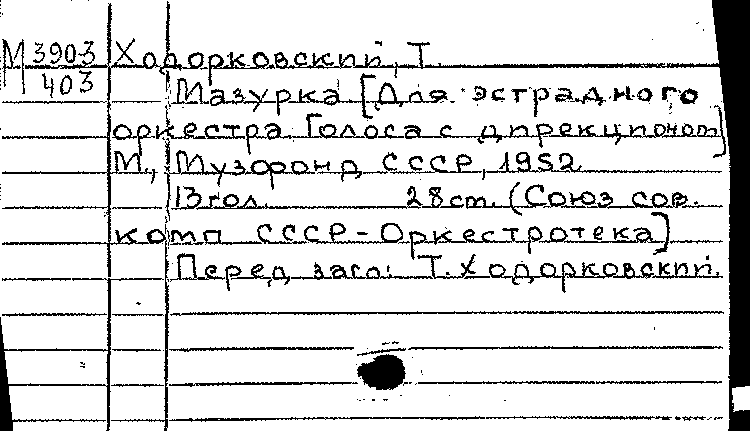 М 3903 Ходорковский, Т.
403 Мазурка [Для эстрадного
оркестра Голоса с дирекционом]
М., Музфонд СССР, 1952
13 гол. 28 ст. (Союз сов.
комп СССР-Оркестротека]
Перед загл: Т. Ходорковский.